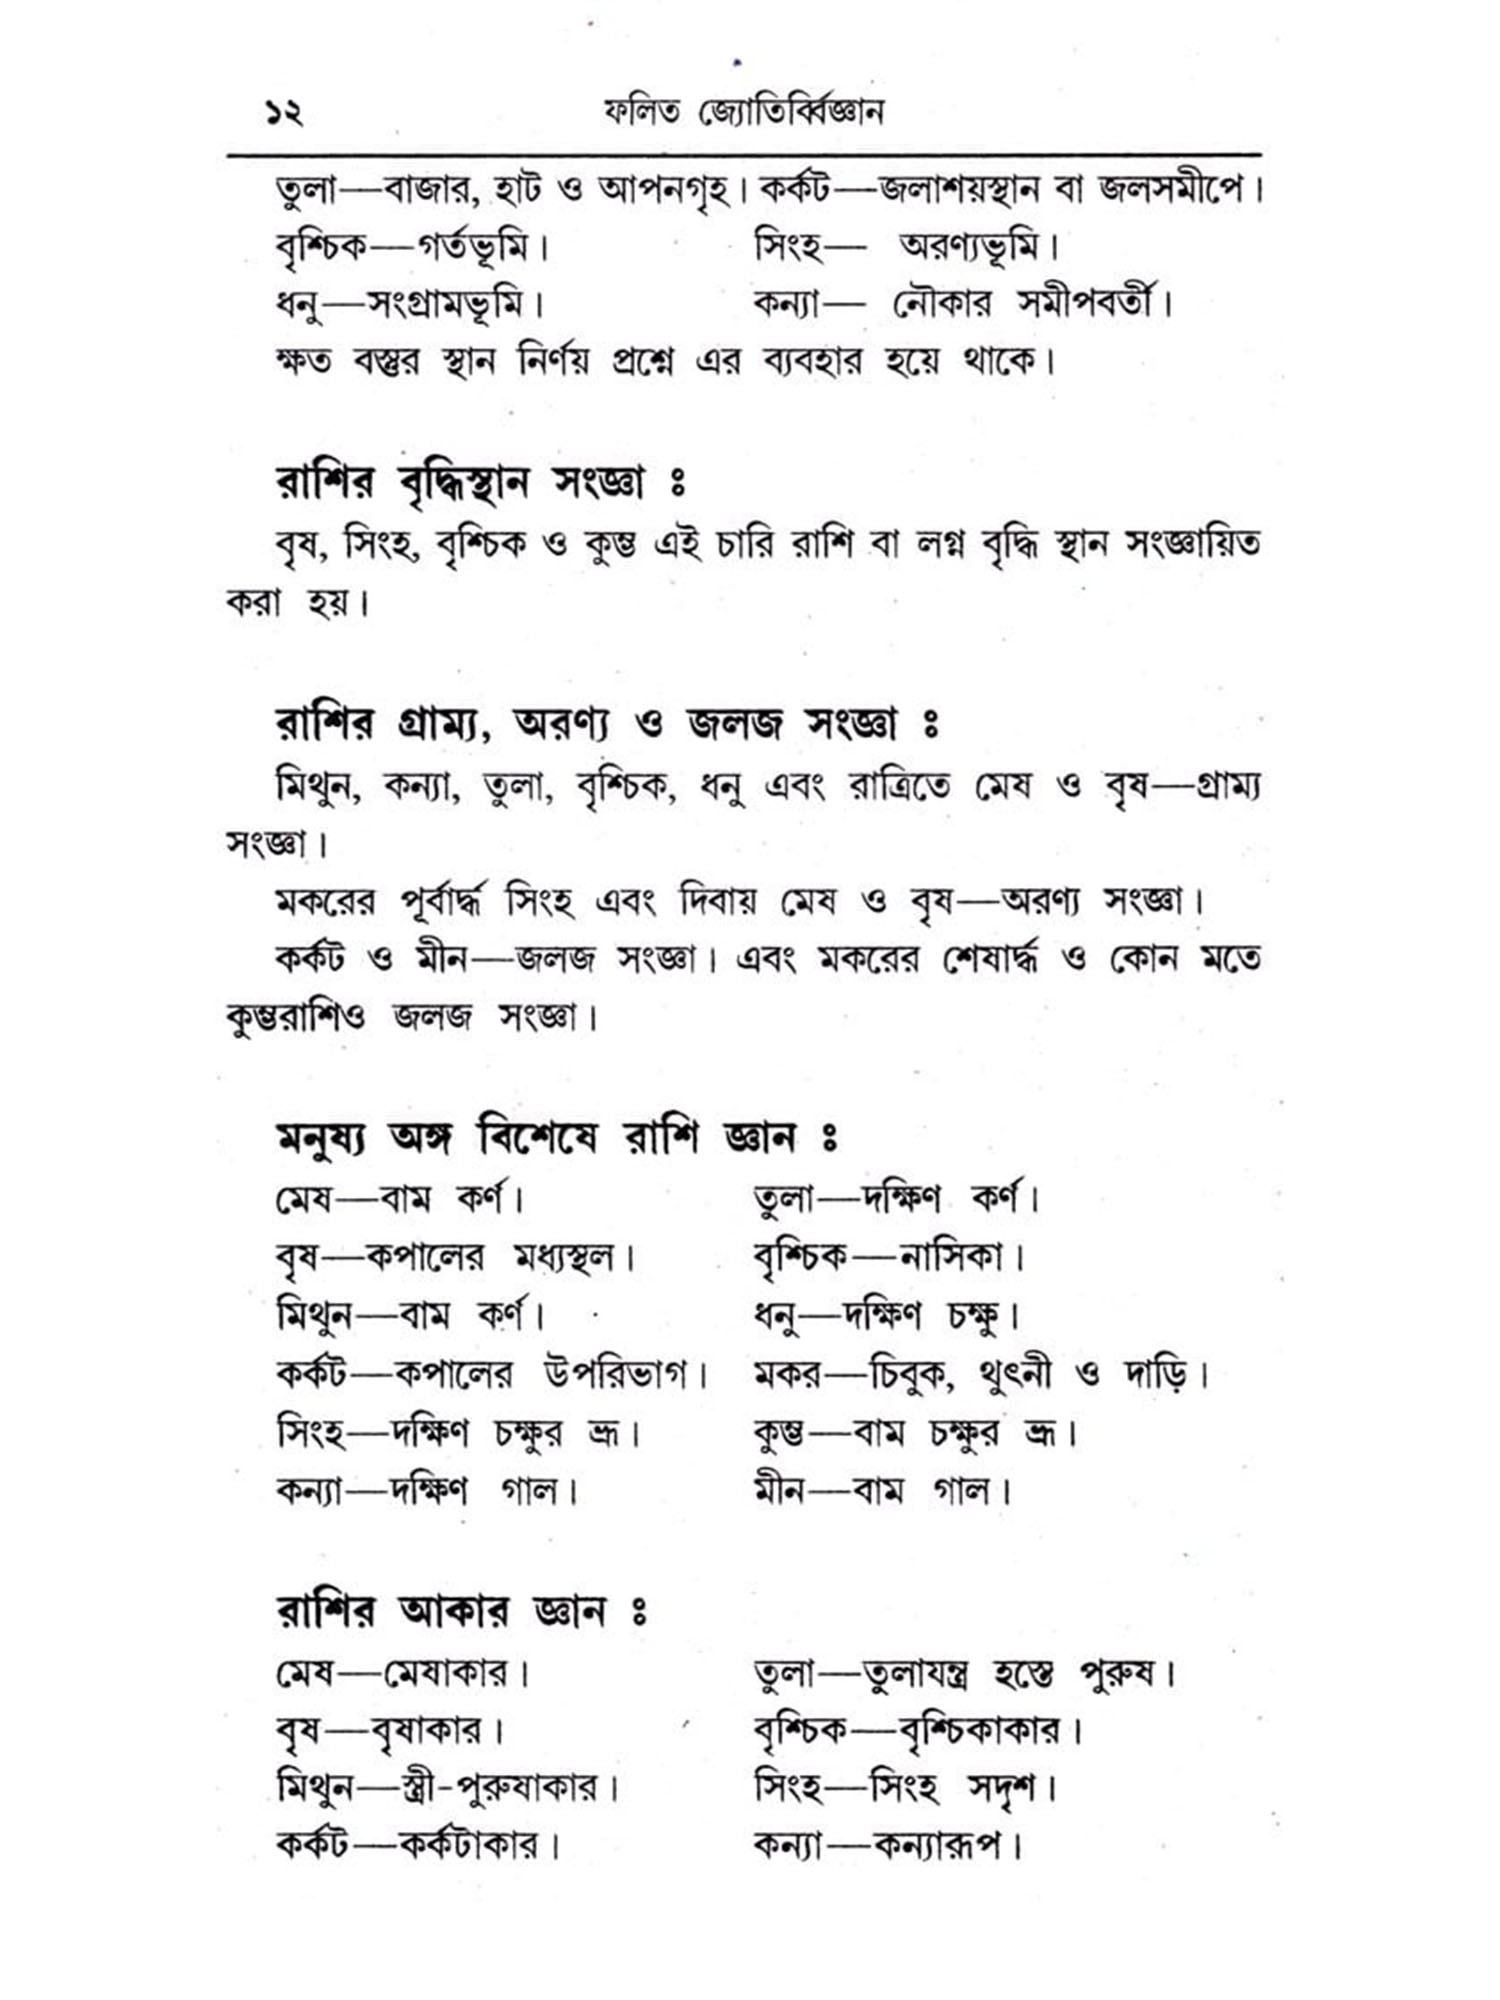 ১২ ফলিত জ্যোতির্ব্বিজ্ঞান
তুলা—বাজার, হাট ও আপনগৃহ। কর্কট—জলাশয়স্থান বা জলসমীপে।
বৃশ্চিক—গর্তভূমি। সিংহ— অরণ্যভূমি।
ধনু—সংগ্রামভূমি। কন্যা— নৌকার সমীপবর্তী।
ক্ষত বস্তুর স্থান নির্ণয় প্রশ্নে এর ব্যবহার হয়ে থাকে।
রাশির বৃদ্ধিস্থান সংজ্ঞা ঃ
বৃষ, সিংহ, বৃশ্চিক ও কুম্ভ এই চারি রাশি বা লগ্ন বৃদ্ধি স্থান সংজ্ঞায়িত
করা হয়।
রাশির গ্রাম্য, অরণ্য ও জলজ সংজ্ঞা ঃ
মিথুন, কন্যা, তুলা, বৃশ্চিক, ধনু এবং রাত্রিতে মেষ ও বৃষ—গ্রাম্য
সংজ্ঞা।
মকরের পূর্বার্দ্ধ সিংহ এবং দিবায় মেষ ও বৃষ—অরণ্য সংজ্ঞা।
কর্কট ও মীন—জলজ সংজ্ঞা। এবং মকরের শেষার্দ্ধ ও কোন মতে
কুম্ভরাশিও জলজ সংজ্ঞা।
মনুষ্য অঙ্গ বিশেষে রাশি জ্ঞান ঃ
মেষ—বাম কর্ণ। তুলা—দক্ষিণ কর্ণ।
বৃষ—কপালের মধ্যস্থল। বৃশ্চিক—নাসিকা।
মিথুন—বাম কর্ণ। ধনু—দক্ষিণ চক্ষু।
কর্কট—কপালের উপরিভাগ। মকর—চিবুক, থুৎনী ও দাড়ি।
সিংহ—দক্ষিণ চক্ষুর ভ্রূ। কুম্ভ—বাম চক্ষুর ভ্রূ।
কন্যা—দক্ষিণ গাল। মীন—বাম গাল।
রাশির আকার জ্ঞান ঃ
মেষ—মেষাকার। তুলা—তুলাযন্ত্র হস্তে পুরুষ।
বৃষ—বৃষাকার। বৃশ্চিক—বৃশ্চিকাকার।
মিথুন—স্ত্রী-পুরুষাকার। সিংহ—সিংহ সদৃশ।
কর্কট—কর্কটাকার। কন্যা—কন্যারূপ।